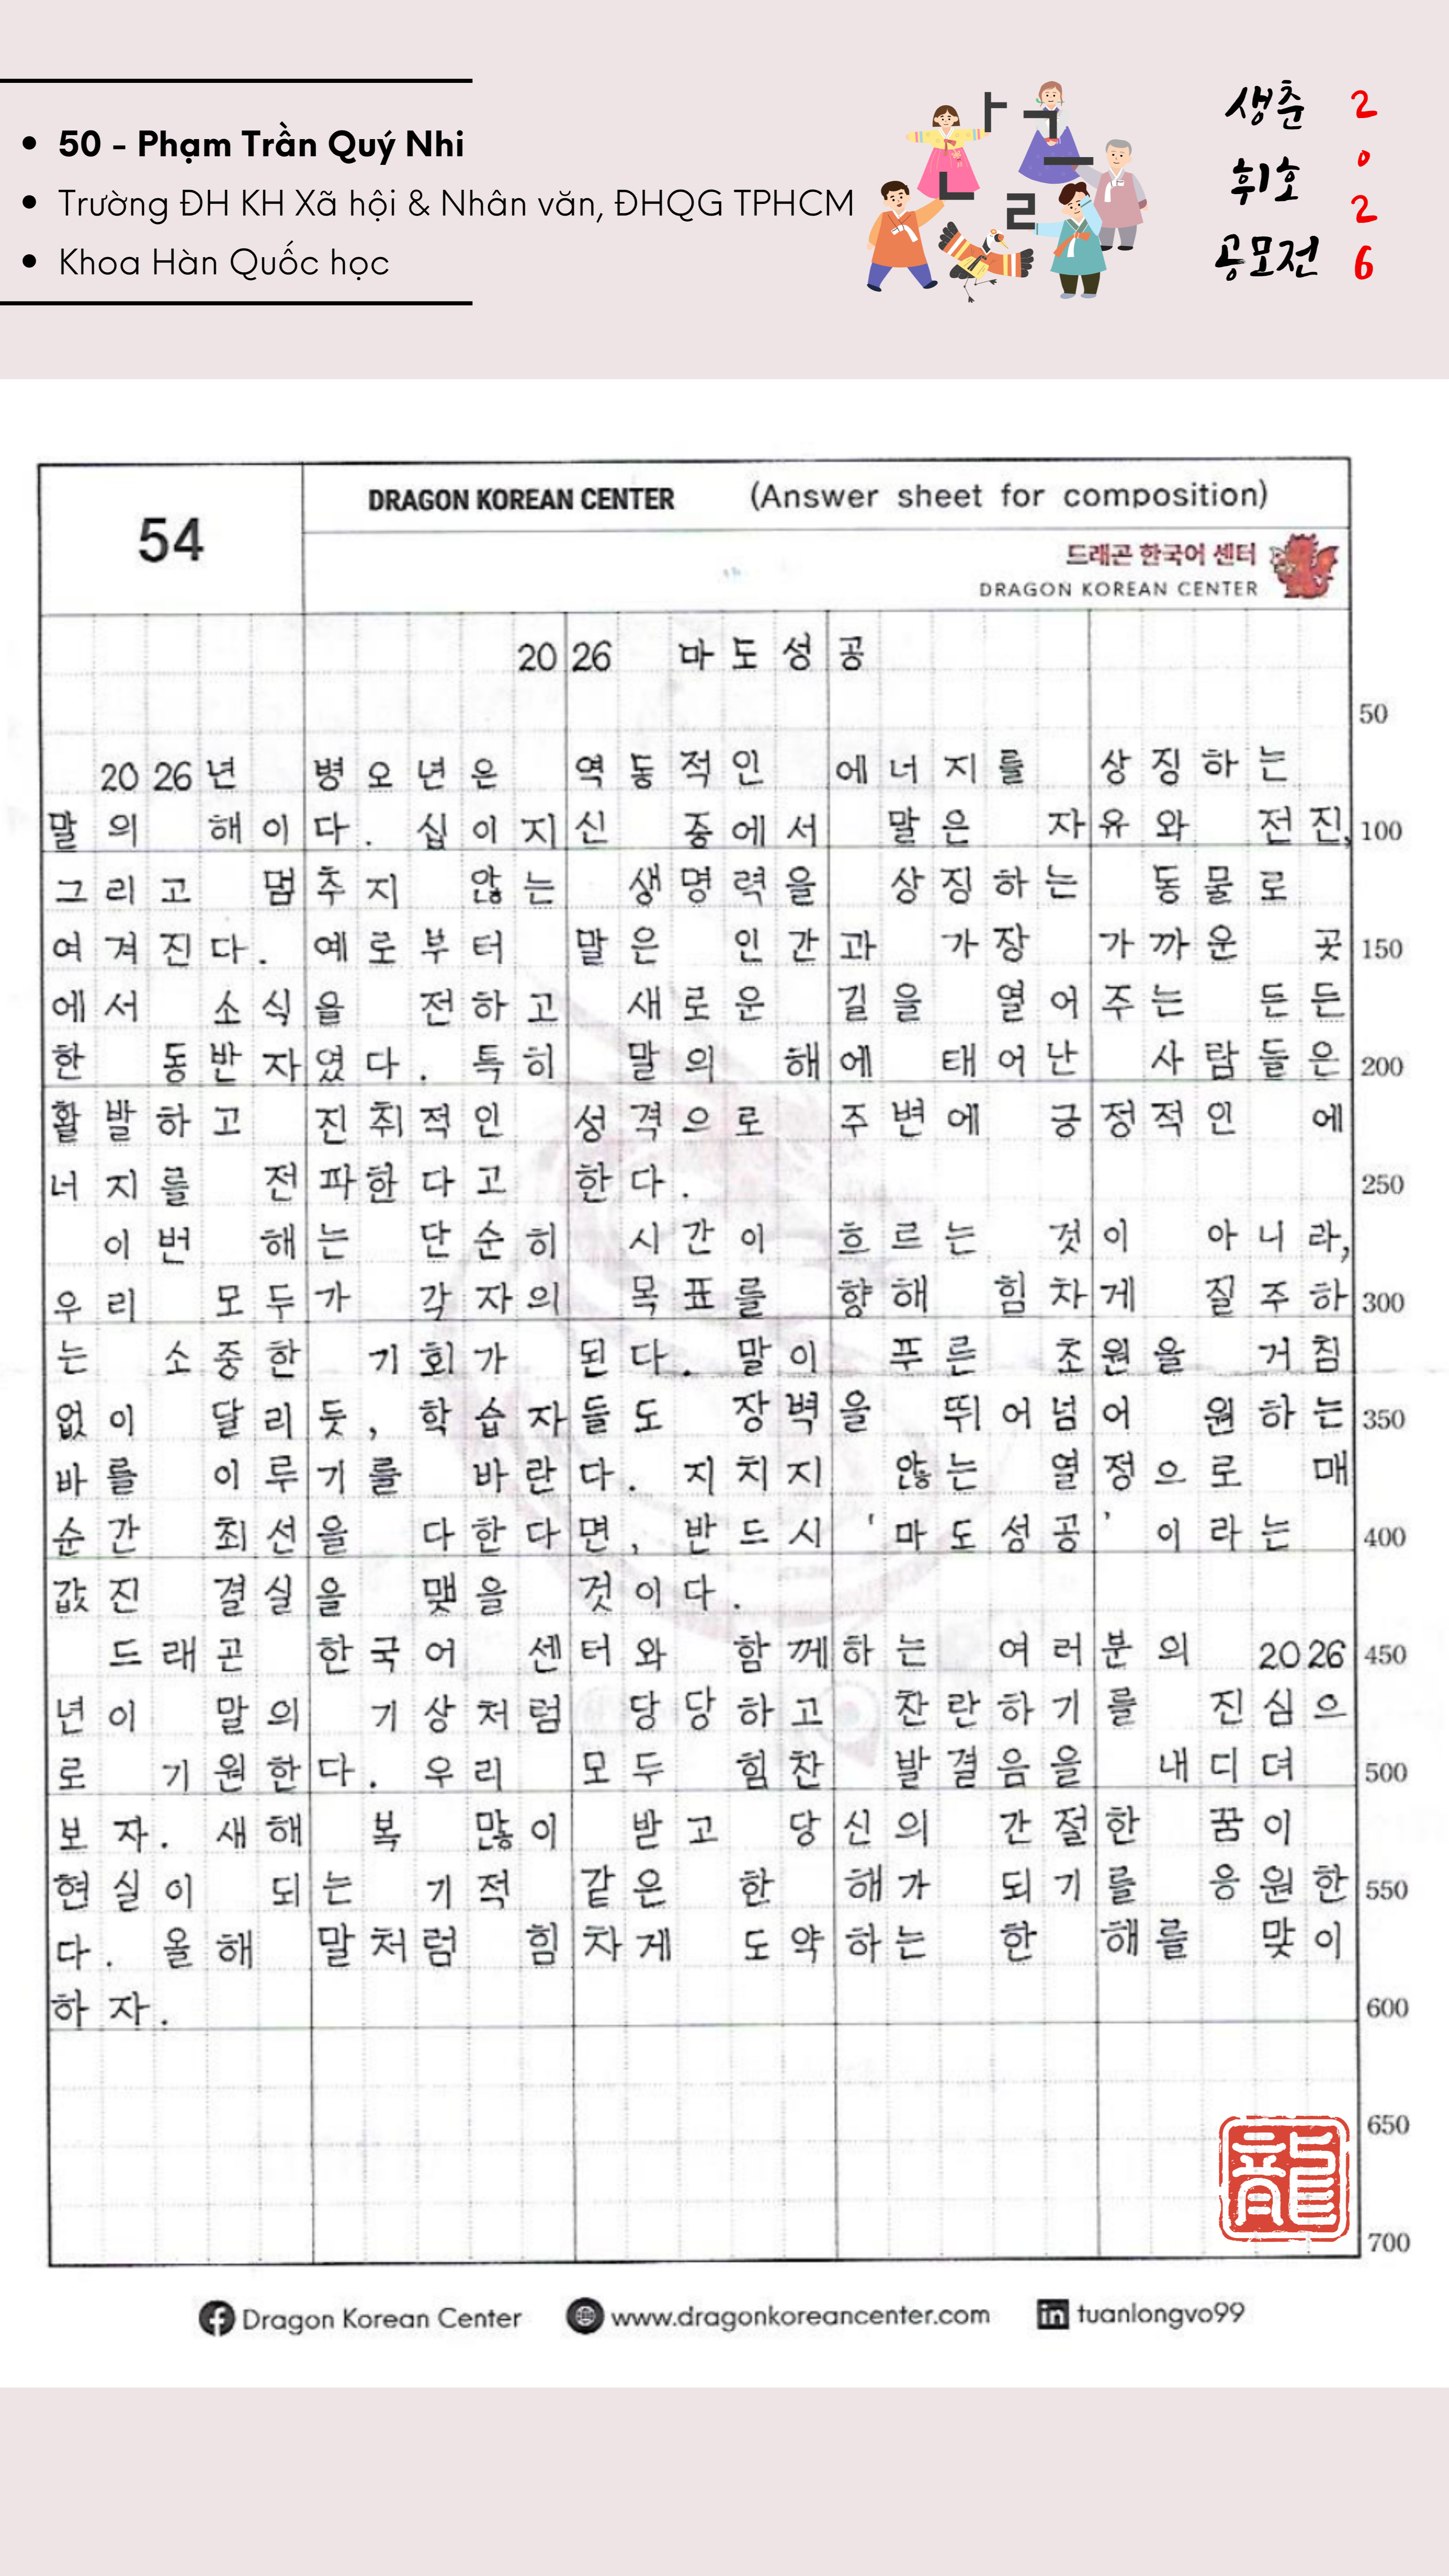 50 - Phạm Trần Quý Nhi
Trường ĐH KH Xã hội & Nhân văn, ĐHQG TPHCM
Khoa Hàn Quốc học
ㅏ ㄱ ㅡ ㄴ ㄹ
생춘
휘호
공모전
2
0
2
6
54
DRAGON KOREAN CENTER (Answer sheet for composition)
드래곤 한국어 센터
DRAGON KOREAN CENTER
2026 마도성공
50
2026년 병오년은 역동적인 에너지를 상징하는
말의 해이다. 십이지신 중에서 말은 자유와 전진, 100
그리고 멈추지 않는 생명력을 상징하는 동물로
여겨진다. 예로부터 말은 인간과 가장 가까운 곳 150
에서 소식을 전하고 새로운 길을 열어주는 든든
한 동반자였다. 특히 말의 해에 태어난 사람들은 200
활발하고 진취적인 성격으로 주변에 긍정적인 에
너지를 전파한다고 한다. 250
이번 해는 단순히 시간이 흐르는 것이 아니라,
우리 모두가 각자의 목표를 향해 힘차게 질주하 300
는 소중한 기회가 된다. 말이 푸른 초원을 거침
없이 달리듯, 학습자들도 장벽을 뛰어넘어 원하는 350
바를 이루기를 바란다. 지치지 않는 열정으로 매
순간 최선을 다한다면, 반드시 '마도성공' 이라는 400
값진 결실을 맺을 것이다.
드래곤 한국어 센터와 함께하는 여러분의 2026 450
년이 말의 기상처럼 당당하고 찬란하기를 진심으
로 기원한다. 우리 모두 힘찬 발걸음을 내디뎌 500
보자. 새해 복 많이 받고 당신의 간절한 꿈이
현실이 되는 기적 같은 한 해가 되기를 응원한 550
다. 올해 말처럼 힘차게 도약하는 한 해를 맞이
하자. 600
650
龍
700
Dragon Korean Center www.dragonkoreancenter.com tuanlongvo99